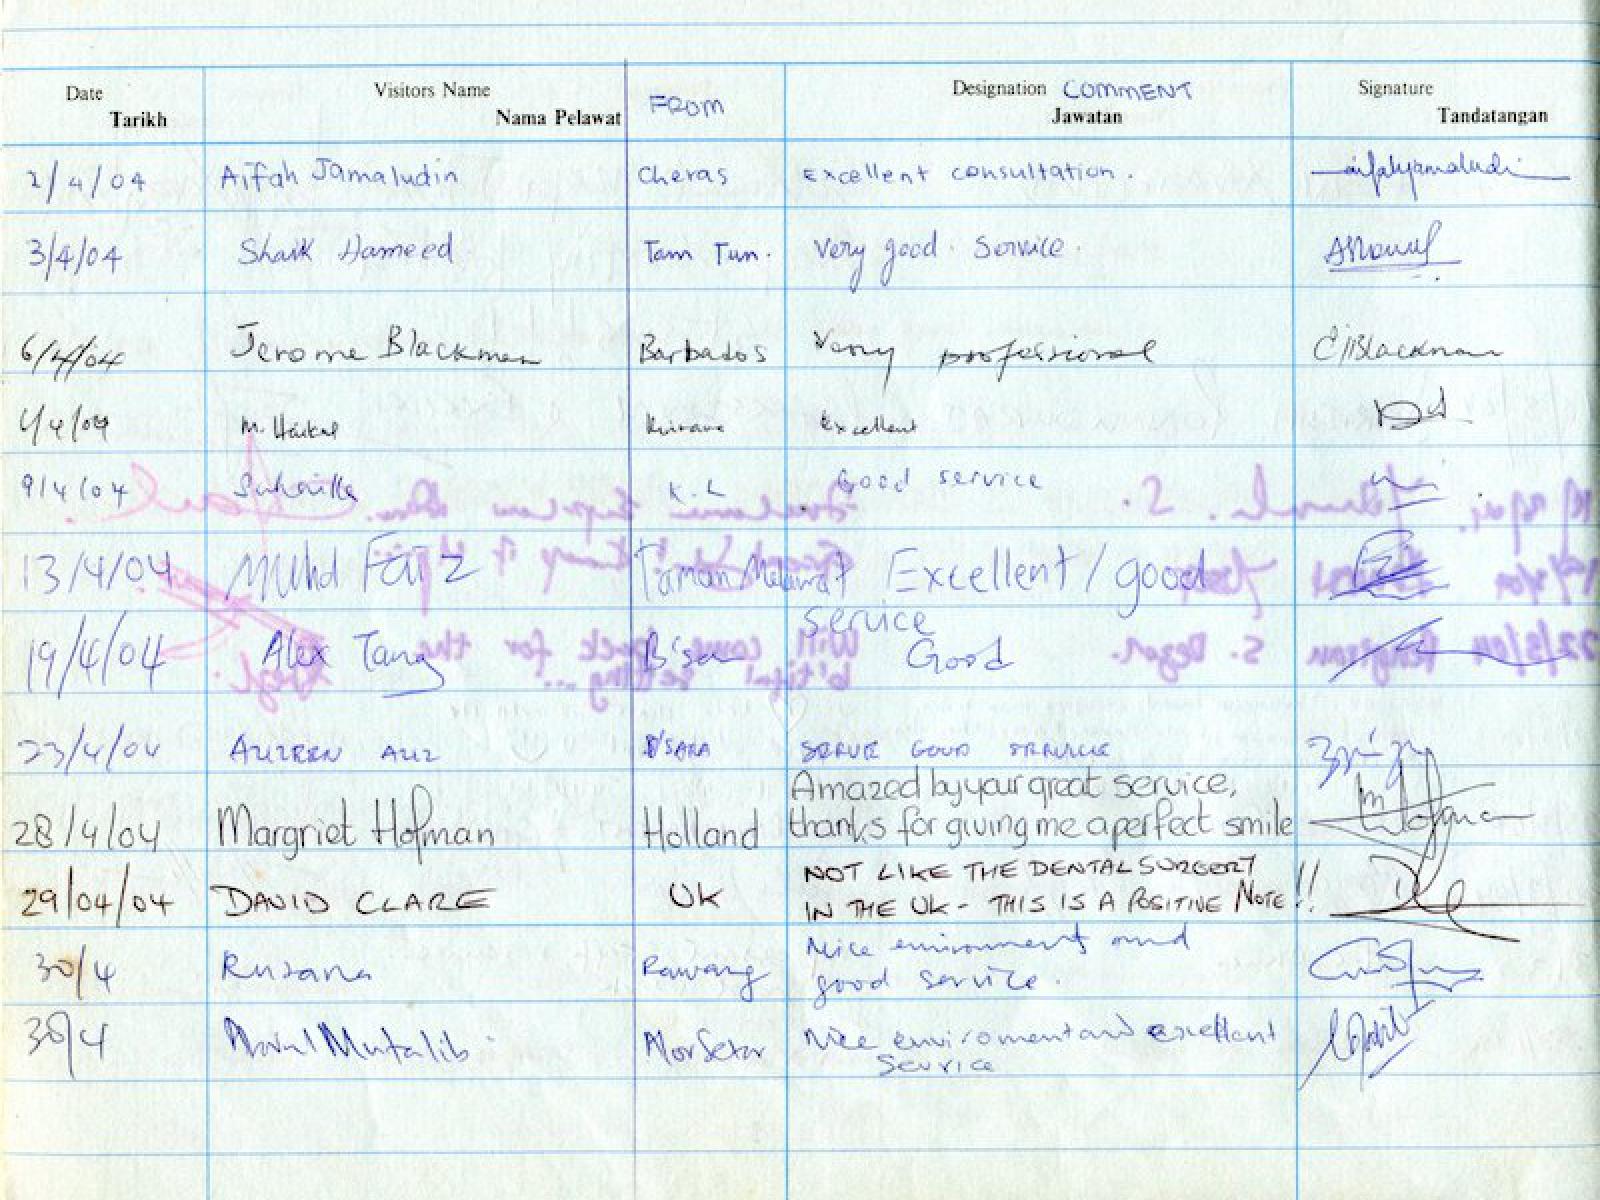 Date Visitors Name Designation COMMENT Signature
Tarikh Nama Pelawat FROM Jawatan Tandatangan
2/4/04 Aifah Jamaludin Cheras Excellent consultation.
3/4/04 Shaik Hameed Tam Tun. Very good. Service.
6/4/04 Jerome Blackman Barbados Very professional
M. Haikal Excellent
9/4/04 Suhaila K.L Good service
13/4/04 Muhd Faiz Taman Melawati Excellent/good
service
19/4/04 Alex Tang Good
23/4/04 AZIZEEN AZIZ D'SARA GOOD
Amazed by your great service,
28/4/04 Margriet Hofman Holland thanks for giving me a perfect smile
NOT LIKE THE DENTAL SURGERY
29/04/04 DAVID CLARE UK IN THE UK - THIS IS A POSITIVE NOTE!!
Nice environment and
30/4 Ruzana Rawang good service.
30/4 Mutalib Alor Setar Nice enviroment and excellent
service